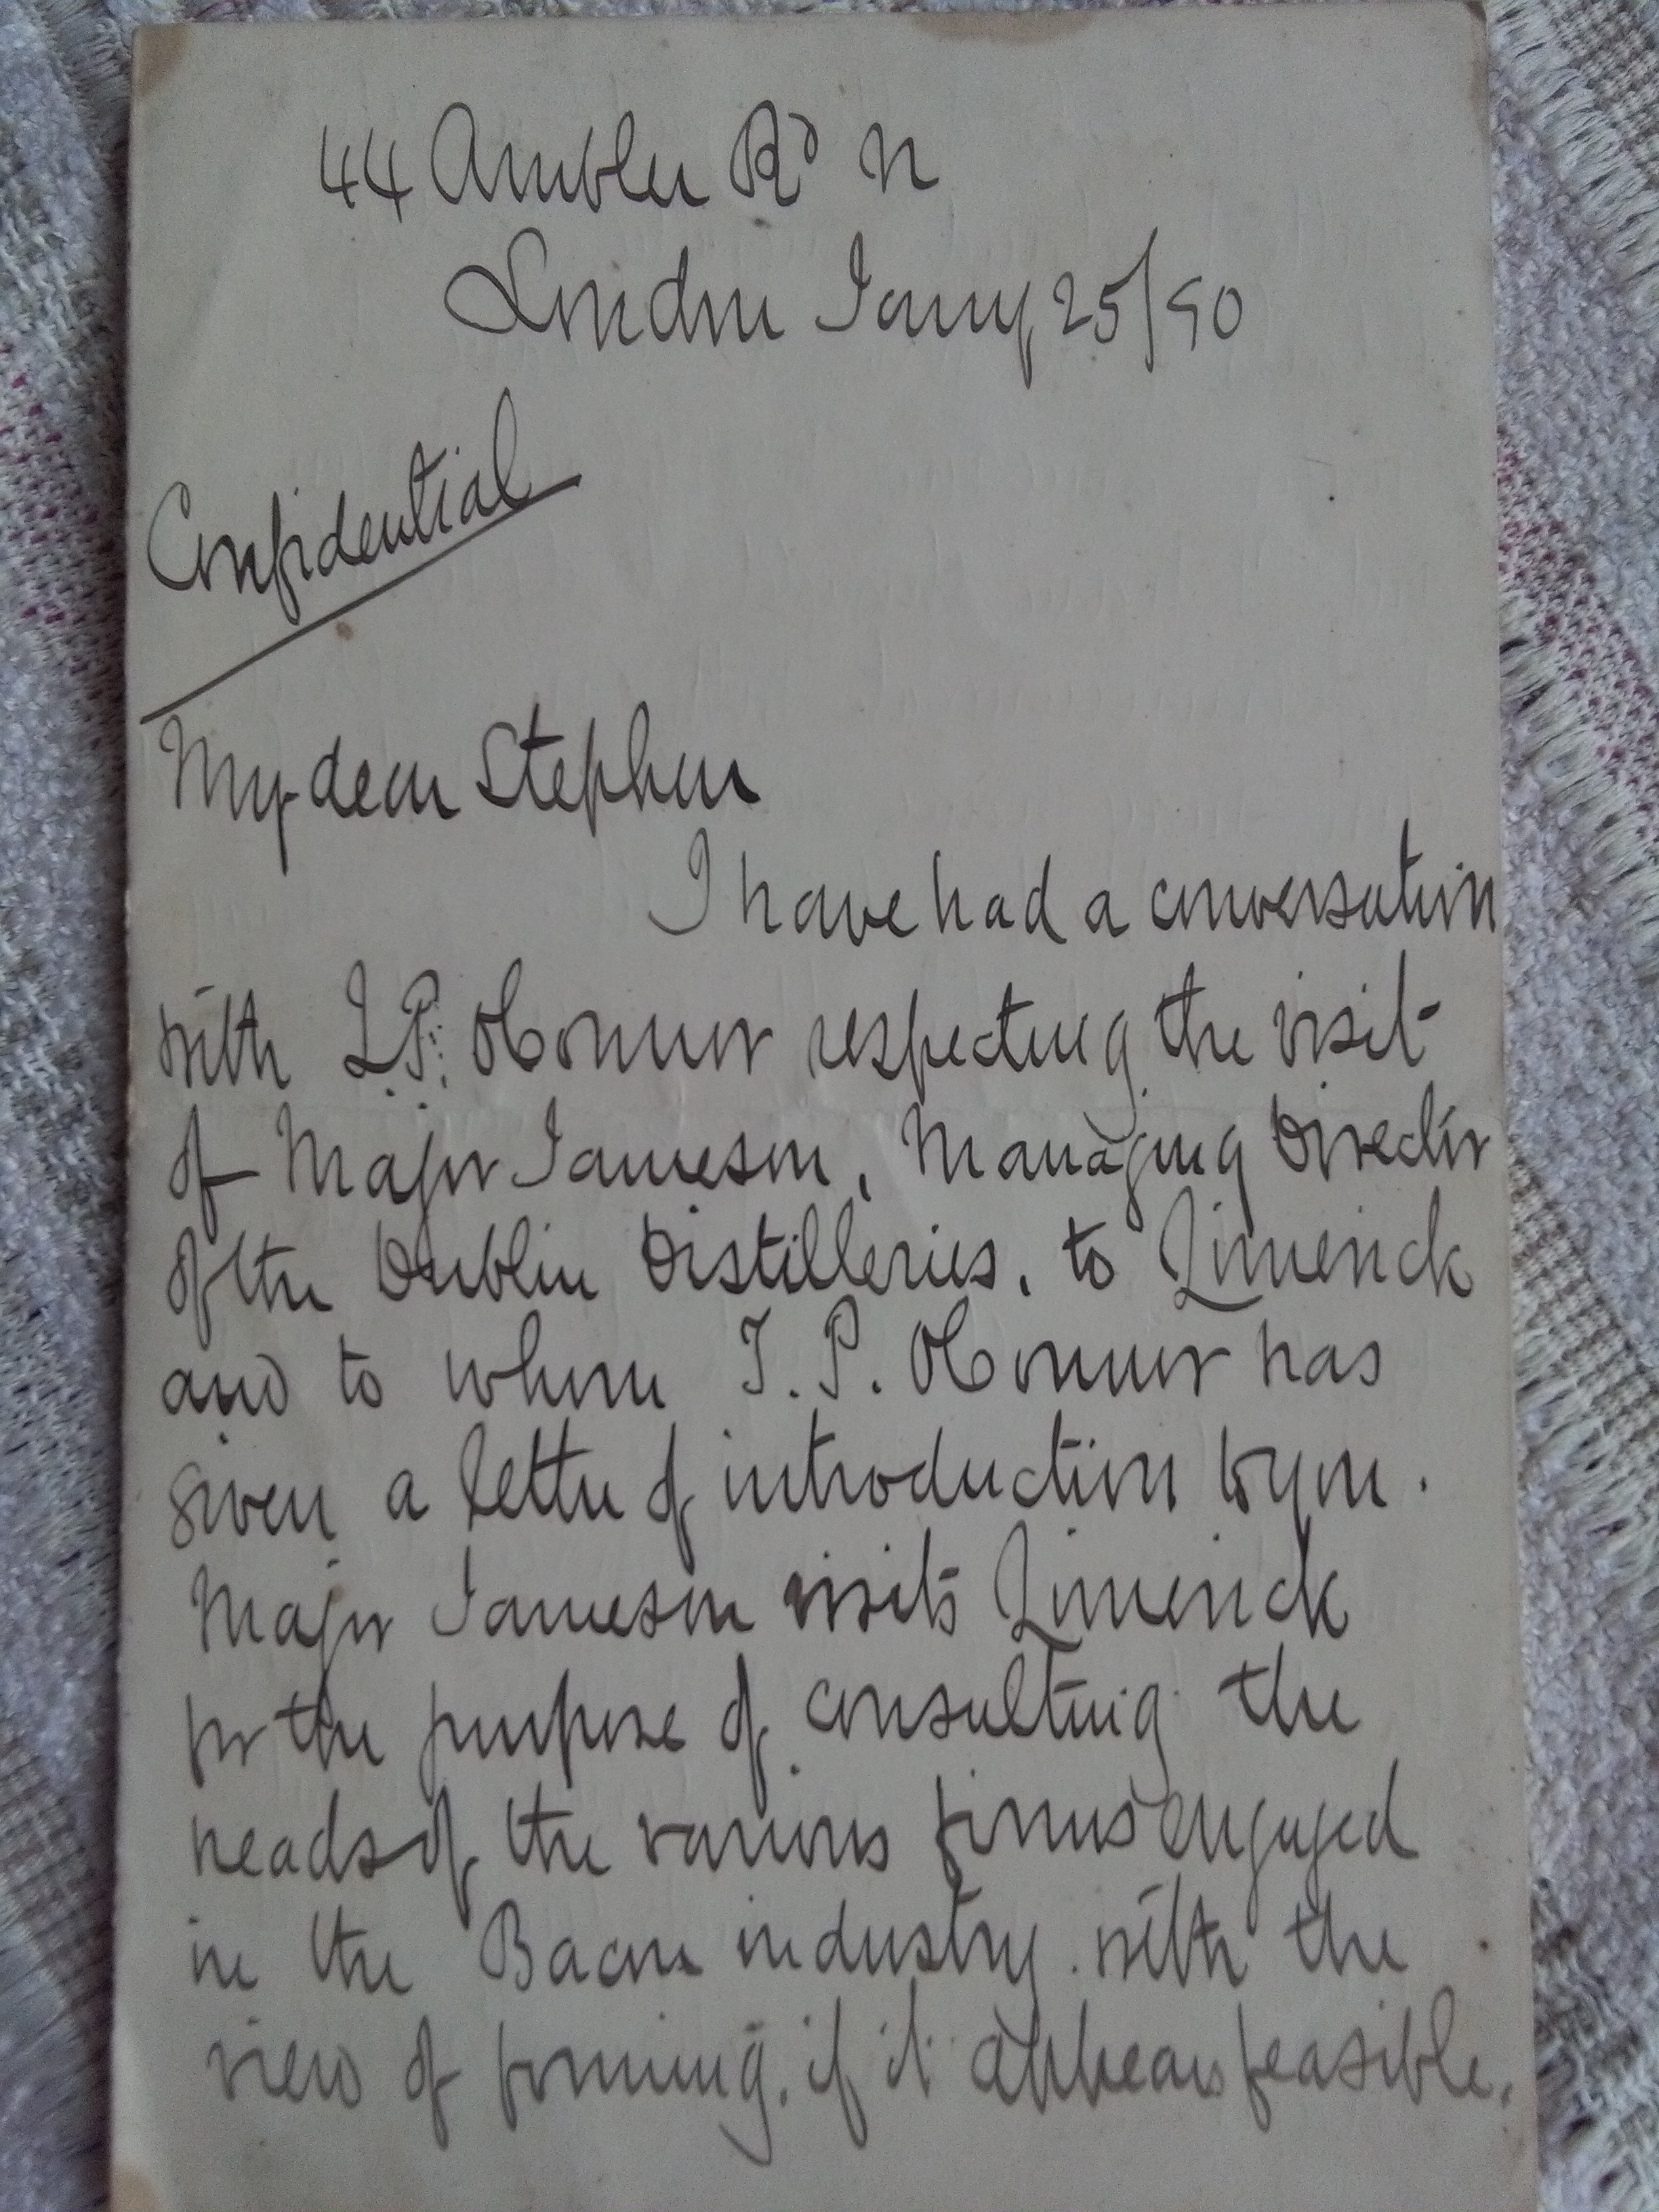 44 Ambler Rd N
London Jany 25/90
Confidential
My dear Stephen
I have had a conversation
with T.P. O'Connor respecting the visit
of Major Jameson, Managing Director
of the Dublin Distilleries, to Limerick
and to whom T. P. O'Connor has
given a letter of introduction to you.
Major Jameson visits Limerick
for the purpose of consulting the
heads of the various firms engaged
in the Bacon industry. with the
view of forming, if it appears feasible,